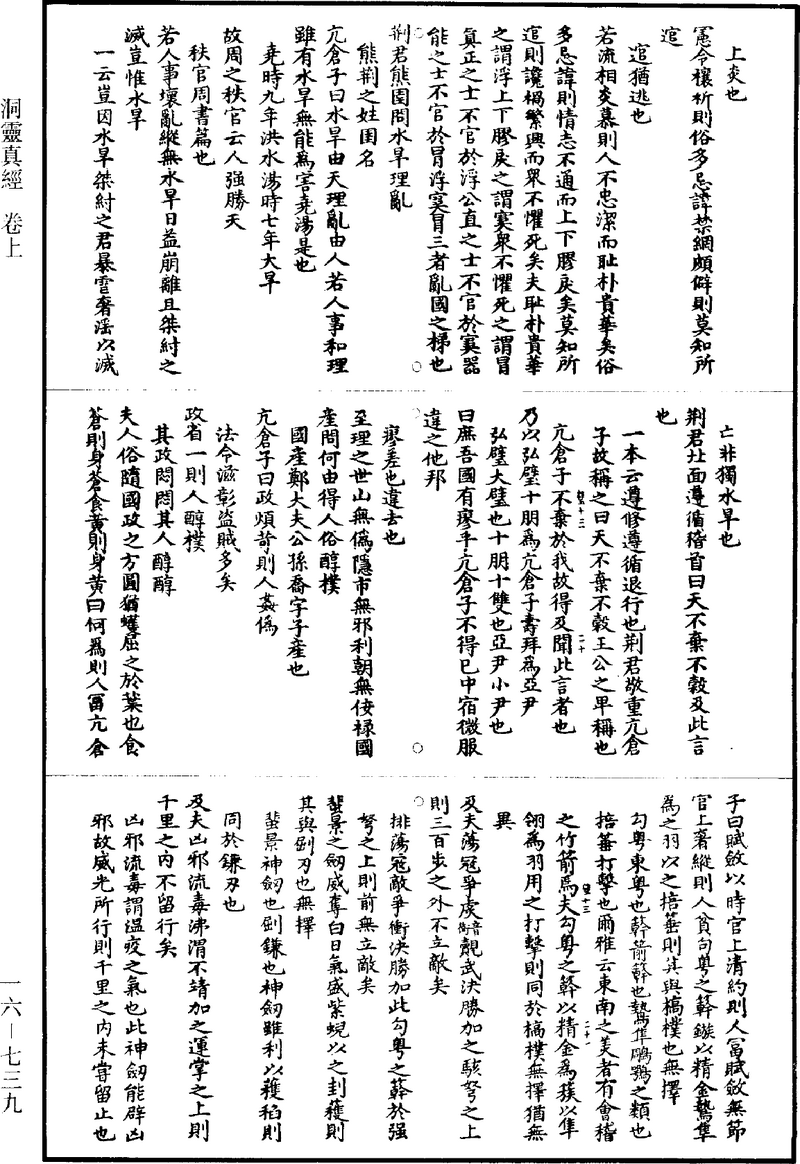 洞靈真經　卷上
一六－七三九
上炎也
憲令穰祈則俗多忌諱禁網頗僻則莫知所
逭
逭猶逃也
若流相炎慕則人不忠潔而耻朴貴華矣俗
多忌諱則情志不通而上下膠戾矣莫知所
逭則讒禍繁興而衆不懼死矣夫耻朴貴華
之謂浮上下膠戾之謂寞衆不懼死之謂冒
真正之士不官於浮公直之士不官於寞器
能之士不官於冒浮寞冒三者亂國之梯也
荆君熊圉問水旱理亂
熊荆之姓圉名
亢倉子曰水旱由天理亂由人若人事和理
雖有水旱無能為害堯湯是也
堯時九年洪水湯時七年大旱
故周之秩官云人強勝天
秩官周書篇也
若人事壞亂縱無水旱日益崩離且桀紂之
滅豈惟水旱
一云豈因水旱桀紂之君暴雪奢滛以滅
亡非獨水旱也
荆君北面遵循稽首曰天不棄不穀及此言
也
一本云遵修遵循退行也荆君敬重亢倉
子故稱之曰天不棄不穀王公之卑稱也
亢倉子不棄於我故得及聞此言者也
乃以弘璧十朋為亢倉子壽拜為亞尹
弘璧大璧也十朋十雙也亞尹小尹也
曰庶吾國有瘳乎亢倉子不得已中宿微服
違之他邦
瘳差也違去也
至理之世山無僞隱市無邪利朝無佞祿國
產問何由得人俗醇樸
國產鄭大夫公孫喬字子產也
亢倉子曰政煩苛則人姦僞
法令滋彰盜賊多矣
政省一則人醇樸
其政悶悶其人醇醇
夫人俗隨國政之方圓猶蠖屈之於葉也食
蒼則身蒼食黃則身黃曰何爲則人冨亢倉
子曰賦斂以時官上清約則人冨賦斂無節
官上奢縱則人貧勾粤之簳鏃以精金鷙隼
為之羽以之掊箠則其與槁樸也無擇
勾粤東粤也簳箭簳也鷙隼鵰鶚之類也
掊箠打擊也爾雅云東南之美者有會稽
之竹箭焉夫勾粤之簳以精金爲蔟以隼
翎爲羽用之打擊則同於槁樸無擇猶無
異
及夫蕩冦爭䖍觀武決勝加之駭弩之上
則三百步之外不立敵矣
排蕩冦敵爭衝決勝加此勾粤之簳於强
弩之上則前無立敵矣
蜚景之劒威奪白日氣盛紫蜺以之刲穫則
其與剴刃也無擇
蜚景神劒也剴鎌也神劒雖利以穫稻則
同於鎌刃也
及夫凶邪流毒沸渭不靖加之運掌之上則
千里之內不留行矣
凶邪流毒謂溫疫之氣也此神劒能辟凶
邪故威光所行則千里之內未嘗留止也